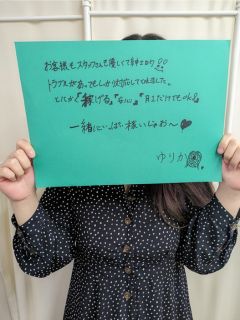 お客様もスタッフさんも優しくて紳士的
トラブルがあってもしっかり対応してくれました。
とにかく稼げる。安心。月1だけでもok
一緒にいっぱい稼いじゃお〜♥
ゆりか